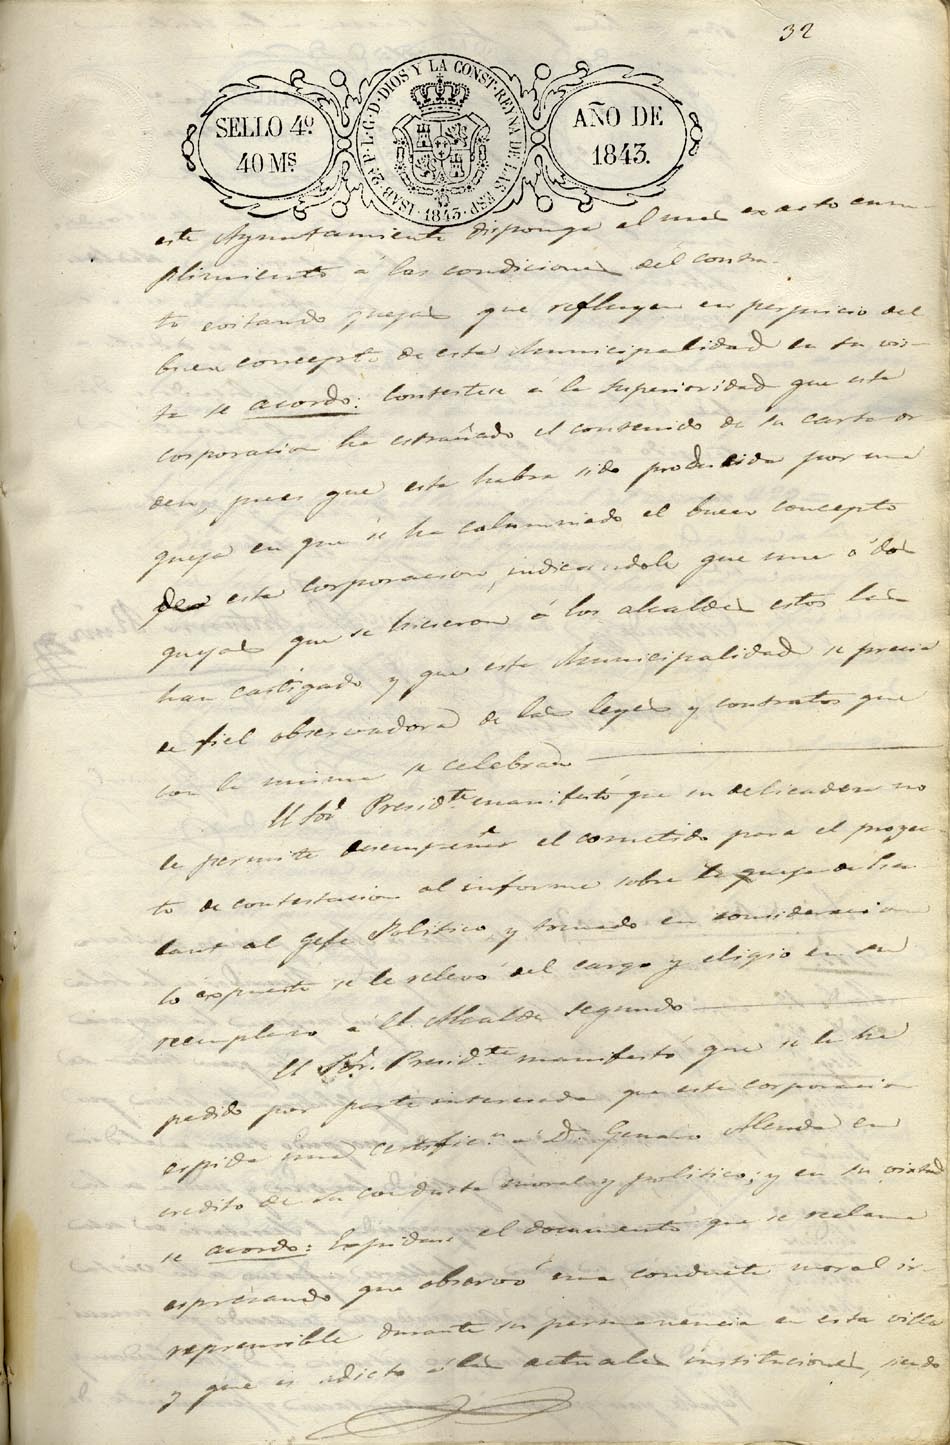 32
SELLO 4º
40 Ms.
ISAB. 2ª P. L. G. D. DIOS Y LA CONST. REYNA DE LAS ESP. 1843.
AÑO DE
1843.
este Ayuntamiento disponga el mas exacto cum-
plimiento á las condiciones del contra-
to evitando quejas que refluyen en perjuicio del
buen concepto de esta Municipalidad en su vis-
ta se acordo: Contestese á la Superioridad que esta
corporacion ha estrañado el contenido de su carta or
den, pues que esta habra sido producida por una
queja en que se ha calumniado el buen concepto
de esta corporacion, indicandole que una ó dos
quejas que se hicieron á los alcaldes estos las
han castigado y que esta Municipalidad se precia
de fiel observadora de las leyes y contratos que
con la misma se celebran
El Sor. Presidte. manifestó que su delicadeza no
le permite desempeñar el cometido para el proyec
to de contestacion al informe sobre la queja de
al Gefe Politico, y tomado en consideracion
lo expuesto se le relevó del cargo y eligio en su
reemplazo á el Alcalde segundo
El Sor. Presidte. manifestó que se le ha
pedido por parte interesada que esta corporacion
espida una certificn. á D. Genaro Alenda en
credito de su conducta moral y politica; y en su virtud
se acordo: Expidase el documento que se reclama
espresando que observó una conducta moral ir-
reprensible durante su permanencia en esta villa
y que es adicto á las actuales instituciones, siendo